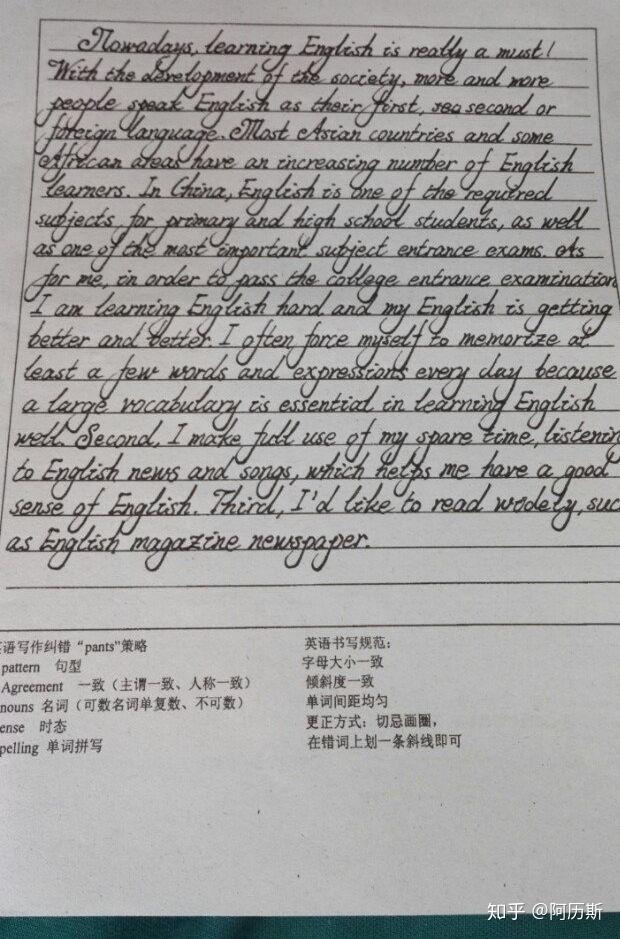 Nowadays, learning English is really a must!
With the development of the society, more and more
people speak English as their first, second or
foreign language. Most Asian countries and some
African areas have an increasing number of English
learners. In China, English is one of the required
subjects for primary and high school students, as well
as one of the most important subject entrance exams. As
for me, in order to pass the college entrance examination
I am learning English hard and my English is getting
better and better. I often force myself to memorize at
least a few words and expressions every day because
a large vocabulary is essential in learning English
well. Second, I make full use of my spare time, listenin
to English news and songs, which helps me have a good
sense of English. Third, I'd like to read widely, suc
as English magazine newspaper.
语写作纠错 “pants”策略
pattern 句型
Agreement 一致（主谓一致、人称一致）
nouns 名词（可数名词单复数、不可数）
ense 时态
pelling 单词拼写
英语书写规范：
字母大小一致
倾斜度一致
单词间距均匀
更正方式：切忌画圈，
在错词上划一条斜线即可
知乎 @阿历斯